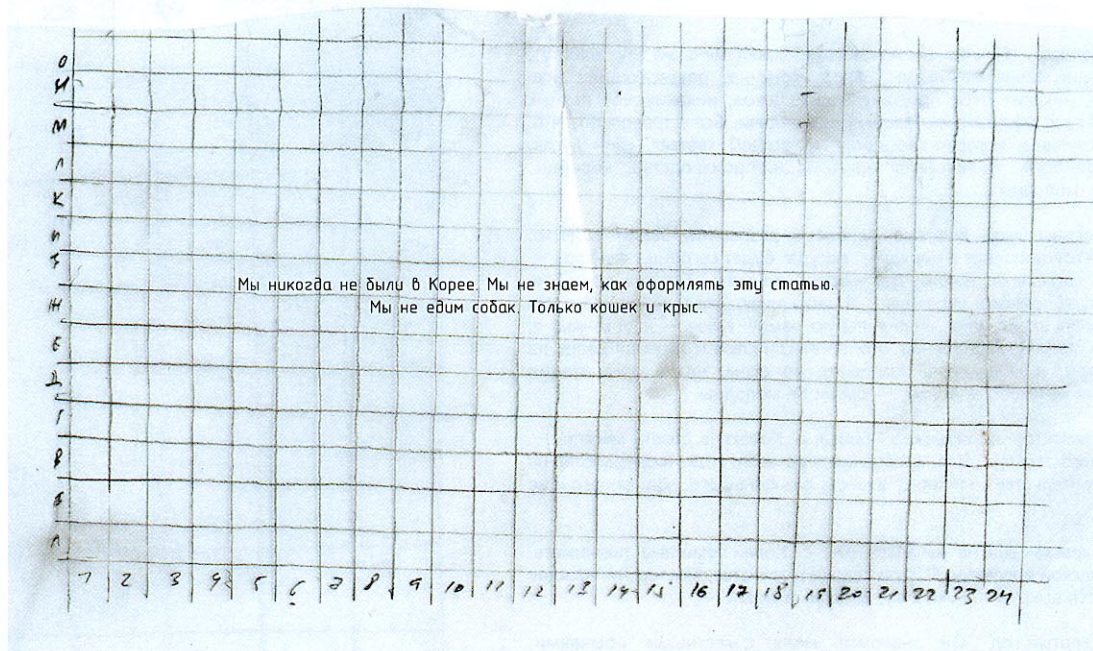 О
Н
М
Л
К
И
Мы никогда не были в Корее. Мы не знаем, как оформлять эту статью.
Ж
Мы не едим собак. Только кошек и крыс.
Е
Д
Г
В
Б
А
1 2 3 4 5 6 7 8 9 10 11 12 13 14 15 16 17 18 19 20 21 22 23 24